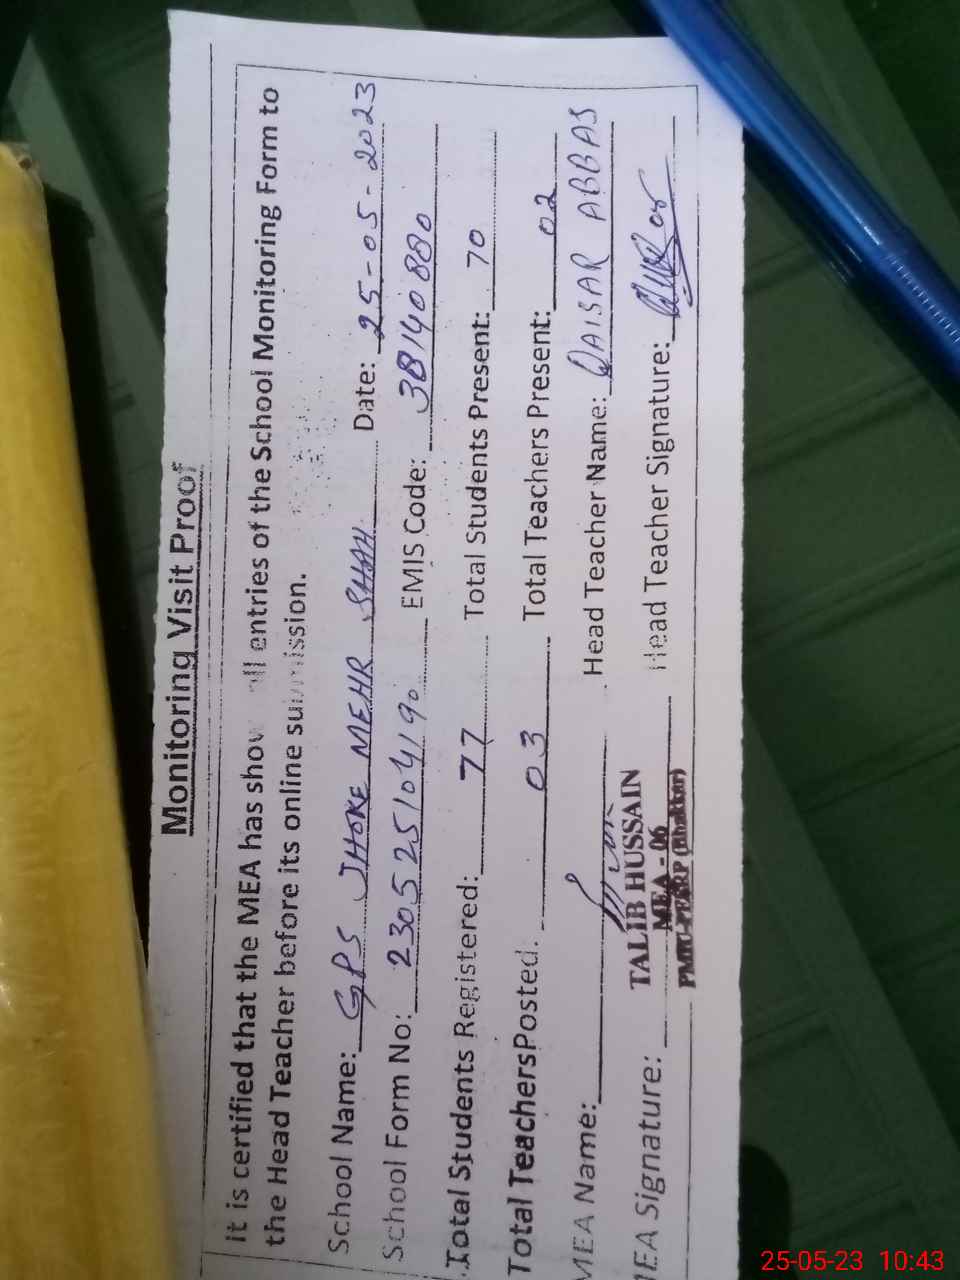 Monitoring Visit Proof
It is certified that the MEA has shown all entries of the School Monitoring Form to
the Head Teacher before its online submission.
School Name: GPS JHOKE MEHR SHAH Date: 25-05-2023
School Form No: 230525104190 EMIS Code: 38140880
Total Students Registered: 77 Total Students Present: 70
Total Teachers Posted: 03 Total Teachers Present: 02
MEA Name: Head Teacher Name: QAISAR ABBAS
MEA Signature: Head Teacher Signature:
TALIB HUSSAIN
MEA - 06
PMIU-PESRP (Bhakkar)
25-05-23 10:43